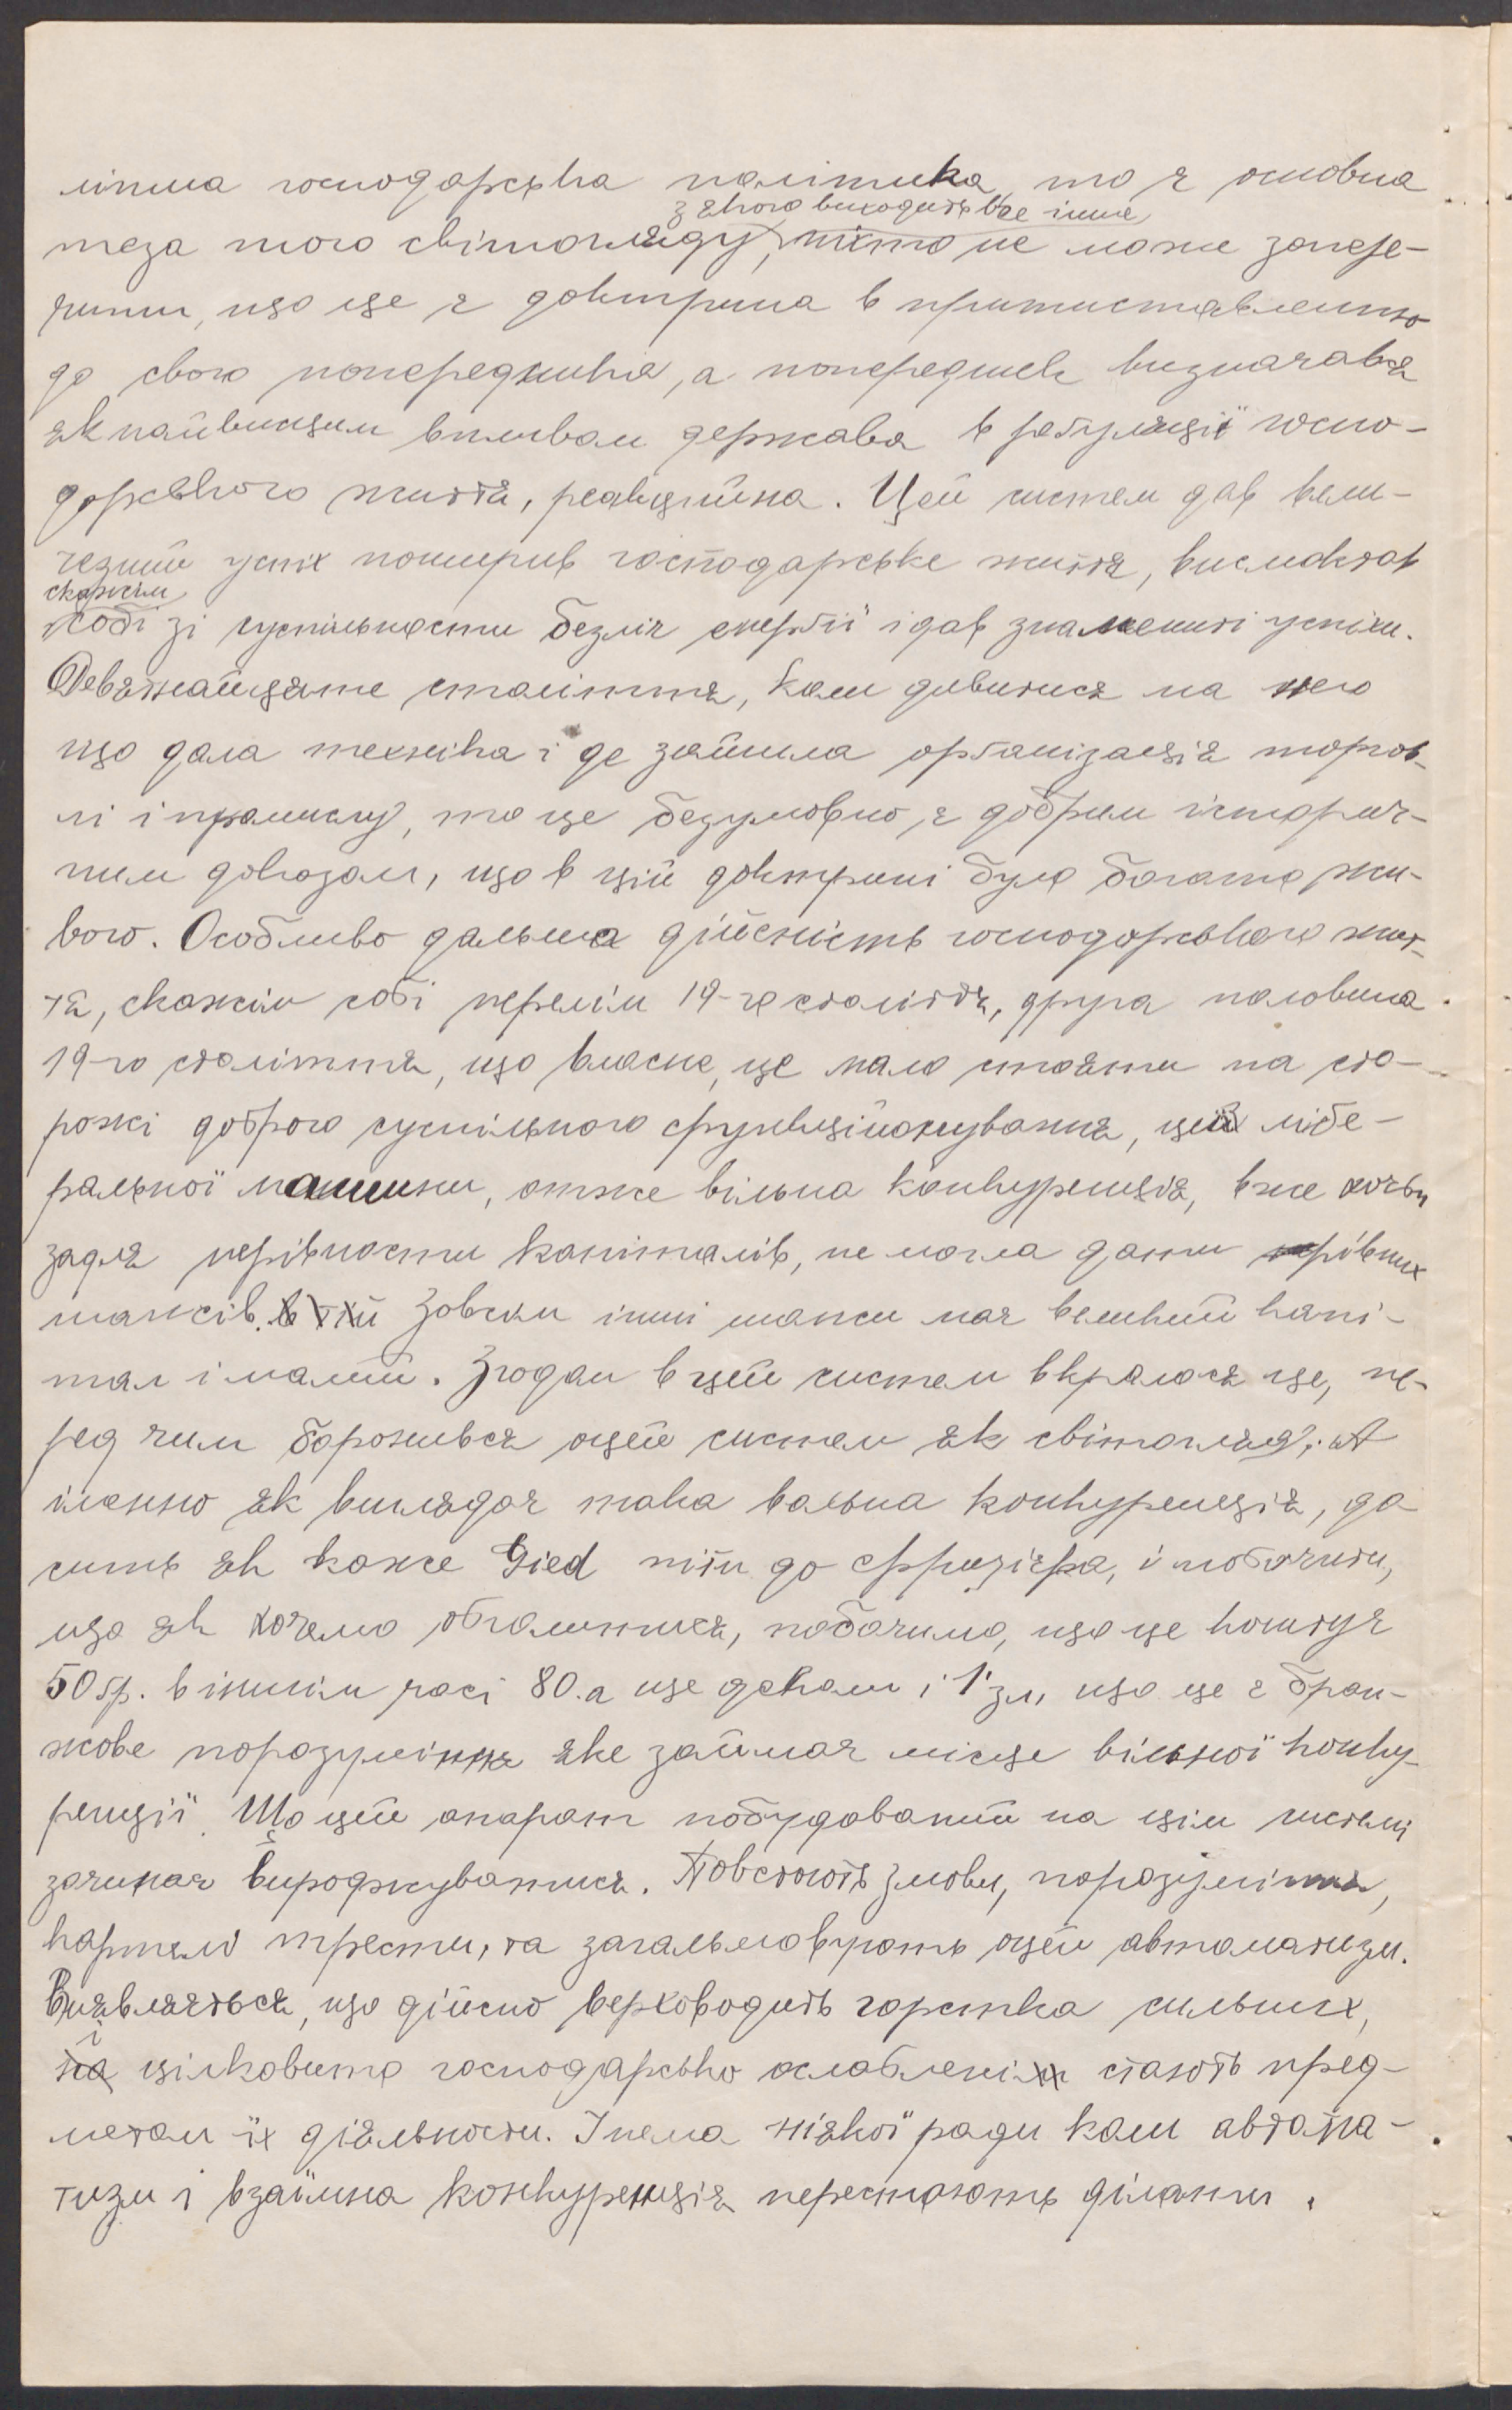 ліпша господарська політика, то є основна
з якого виходить все інше
теза того світогляду, ніхто не може запере-
чити, що це є доктрина в протиставленню
до свого попередника, а попередник визначався
як найвищим впливом держава в регуляції госпо-
дарського життя, реакційна. Цей систем дав вели-
чезний успіх поширив господарське життя, висмоктав
скажем
собі зі суспільности безліч енергії і дав знамениті успіхи.
Девятнайцяте століття, коли дивитися на него
що дала техніка і де зайшла організація торгов-
лі і промислу, то це безумовно є добрим історич-
ним доказом, що в цій доктрині було богато жи-
вого. Особливо дальша дійсність господарського жит-
тя, скажім собі перелім 19-го століття, друга половина
19-го століття, що власне, це мало стояти на сто-
рожі доброго суспільного функціонування, цей лібе-
ральної машини, отже вільна конкуренція, вже хочби
задля нерівности капіталів, не могла дати рівних
шансів. в тій Зовсім інші шанси має великий капі-
тал і малий. Згодом в цей систем вкралося це, пе-
ред чим боронився оцей систем як світогляд; А
іменно як виглядає така вольна конкуренція, до-
сить як каже Gied піти до фризієра, і побачити,
що як хочемо обголитися, побачимо, що це коштує
50 гр. в іншім часі 80. а ще деколи і 1 зл, що це є бран-
жове порозуміння яке займає місце вільної конку-
ренції. Що цей апарат побудований на цім системі
зачинає вироджуватися. Повстають змови, порозуміння,
картелі трести, та загальмовують оцей автоматизм.
Виявляється, що дійсно верховодить горстка сильних,
і
на цілковито господарсько ослаблені стають пред-
метом їх діяльности. І нема ніякої ради коли автома-
тизм і взаїмна конкуренція перестають ділати.